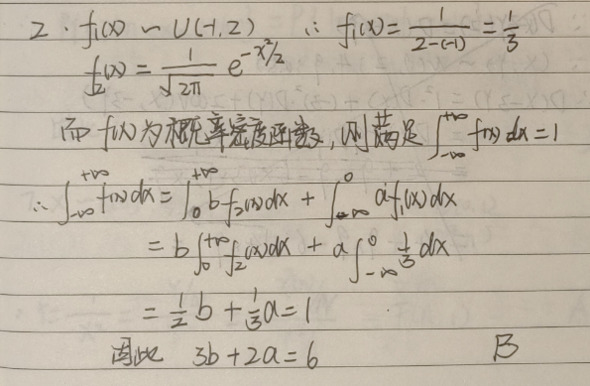 2. f₁(x) ~ U(-1,2) ∴ f₁(x) = 1/(2-(-1)) = 1/3
f₂(x) = 1/√(2π) e^(-x²/2)
而 f(x) 为概率密度函数, 则满足 ∫_{-∞}^{+∞} f(x) dx = 1
∴ ∫_{-∞}^{+∞} f(x) dx = ∫_0^{+∞} b f₂(x) dx + ∫_{-∞}^0 a f₁(x) dx
= b ∫_0^{+∞} f₂(x) dx + a ∫_{-∞}^0 1/3 dx
= 1/2 b + 1/3 a = 1
因此 3b + 2a = 6 B